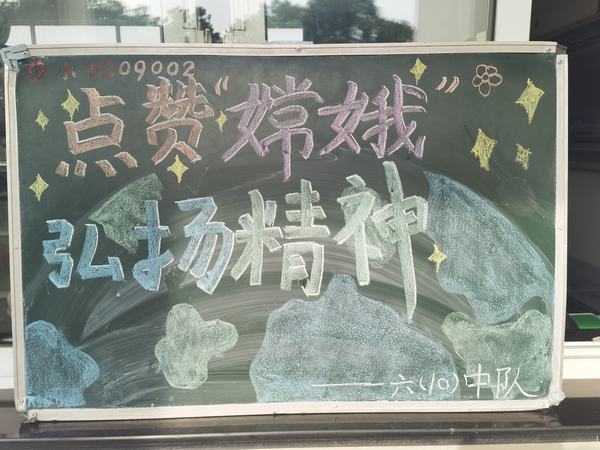 小0209002
点赞“嫦娥”
弘扬精神
——六(10)中队